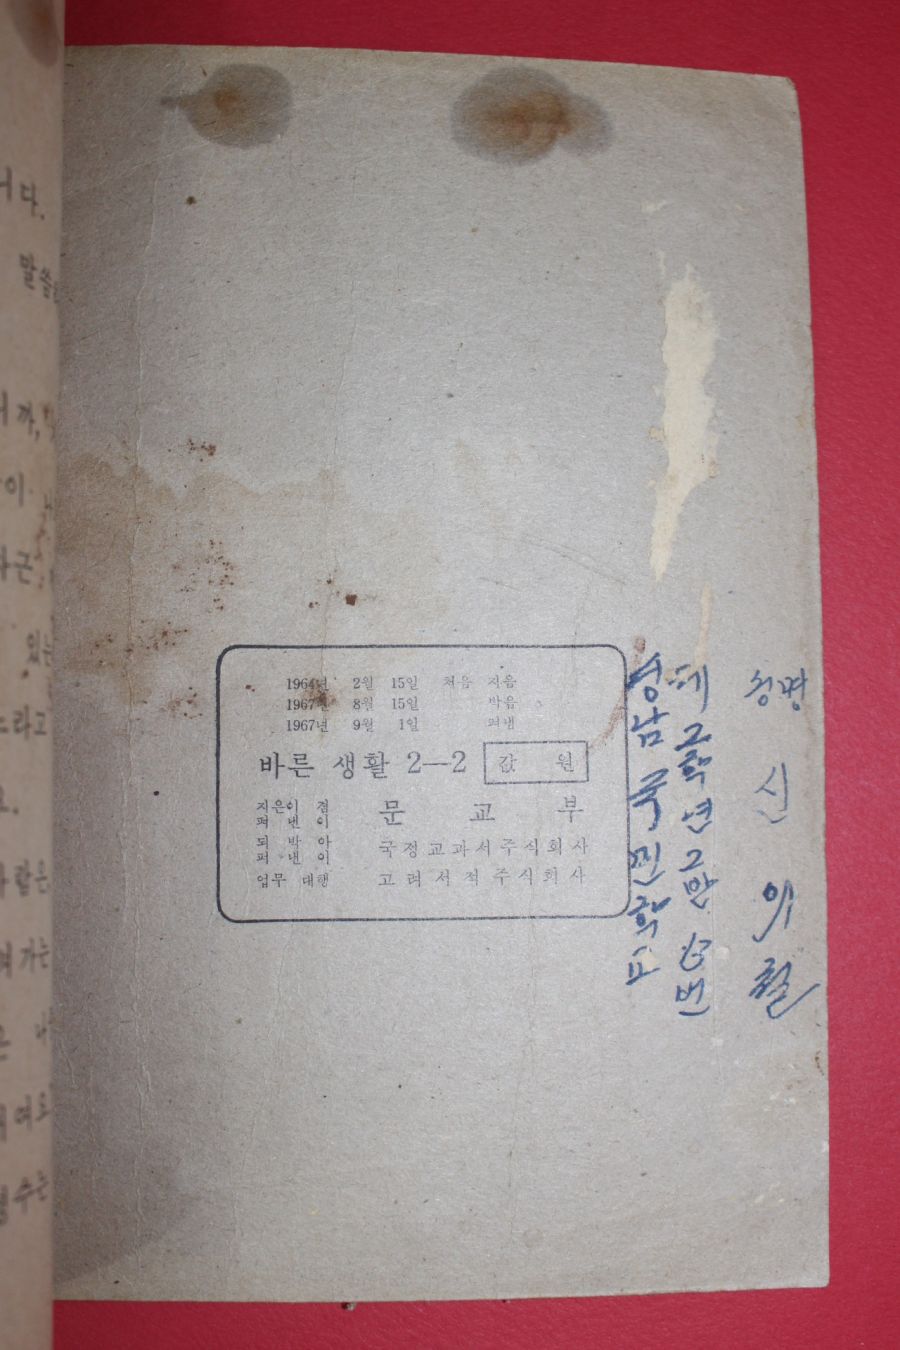 니다.
말씀
니까,
이
근
있는
느라고
고.
람은
가는
는 나
여
수는
1964년 2월 15일 처음 지음
1967년 8월 15일 박음
1967년 9월 1일 펴냄
바른 생활 2—2 값 원
지은이 겸
펴 낸 이 문 교 부
되 박 아
펴 낸 이 국정교과서주식회사
업무 대행 고려서적주식회사
성명 신
제 2학년 2반 63번
성남 국민학교